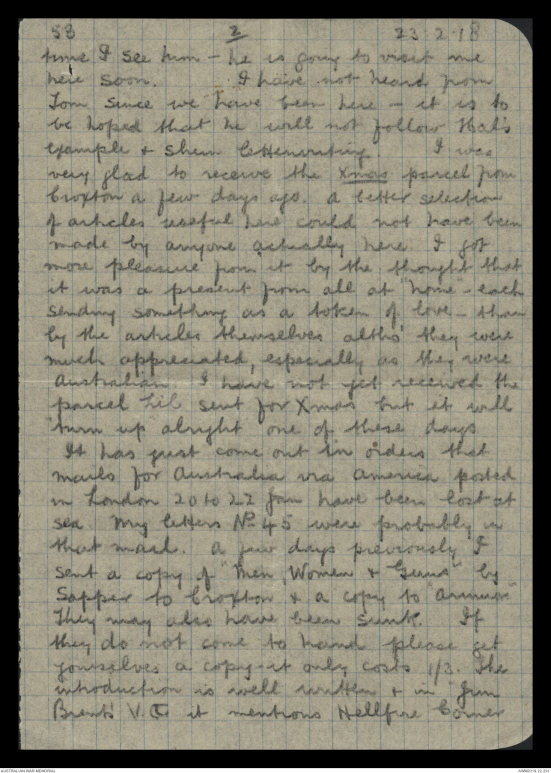 58 2 23.2.18
time I see him - he is going to visit me
here soon. I have not heard from
Tom since we have been here - it is to
be hoped that he will not follow Hal's
example & shun letterwriting I was
very glad to receive the Xmas parcel from
Croxton a few days ago. A better selection
of articles useful here could not have been
made by anyone actually here. I got
more pleasure from it by the thought that
it was a present from all at "home" - each
sending something as a token of love - than
by the articles themselves altho' they were
much appreciated, especially as they were
Australian. I have not yet received the
parcel Lil sent for Xmas but it will
turn up alright one of these days
It has just come out in orders that
mails for Australia via America posted
in London 20 to 22 Jan have been lost at
sea. My letters No 45 were probably in
that mail. A few days previously I
sent a copy of "Men, Women & Guns" by
Sapper to Croxton & a copy to
They may also have been sunk. If
they do not come to hand please get
yourselves a copy - it only costs 1/3. The
introduction is well written & in "Jim
Brent's V.C. it mentions Hellfire Corner
AUSTRALIAN WAR MEMORIAL